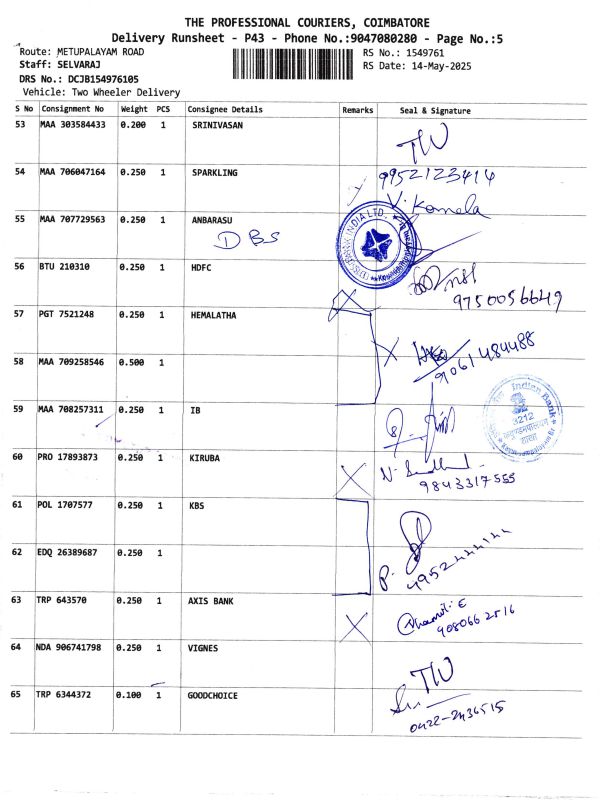 THE PROFESSIONAL COURIERS, COIMBATORE
Delivery Runsheet - P43 - Phone No.:9047080280 - Page No.:5
Route: METUPALAYAM ROAD
RS No.: 1549761
Staff: SELVARAJ
RS Date: 14-May-2025
DRS No.: DCJB154976105
Vehicle: Two Wheeler Delivery
S No Consignment No Weight PCS Consignee Details Remarks Seal & Signature
53 MAA 303584433 0.200 1 SRINIVASAN
54 MAA 706047164 0.250 1 SPARKLING
9952123414
V. Kamela
55 MAA 707729563 0.250 1 ANBARASU
DBS
BANK INDIA LTD.
56 BTU 210310 0.250 1 HDFC
9750056649
57 PGT 7521248 0.250 1 HEMALATHA
9061484488
58 MAA 709258546 0.500 1
Indian Bank
3212
59 MAA 708257311 0.250 1 IB
60 PRO 17893873 0.250 1 KIRUBA
9843317555
61 POL 1707577 0.250 1 KBS
62 EDQ 26389687 0.250 1
63 TRP 643570 0.250 1 AXIS BANK
9080662516
64 NDA 906741798 0.250 1 VIGNES
65 TRP 6344372 0.100 1 GOODCHOICE
0422-2436515